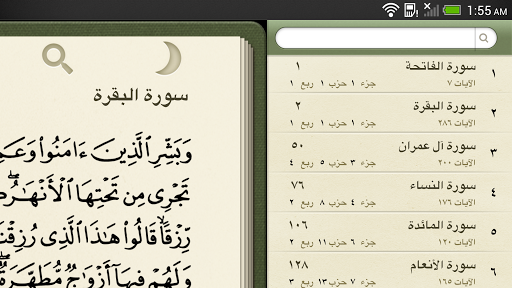 1:55 AM
سورة البقرة
وَبَشِّرِ ٱلَّذِينَ ءَامَنُوا۟ وَعَمِ
تَجْرِى مِن تَحْتِهَا ٱلْأَنْهَٰرُ ۖ
رِّزْقًا ۙ قَالُوا۟ هَٰذَا ٱلَّذِى رُزِقْنَ
وَلَهُمْ فِيهَآ أَزْوَٰجٌ مُّطَهَّرَةٌ ۖ
١ سورة الفاتحة ١
الآيات ٧ جزء ١ حزب ١ ربع ١
٢ سورة البقرة ٢
الآيات ٢٨٦ جزء ١ حزب ١ ربع ١
٣ سورة آل عمران ٥٠
الآيات ٢٠٠ جزء ٣ حزب ٥ ربع ٤
٤ سورة النساء ٧٦
الآيات ١٧٦ جزء ٤ حزب ٨ ربع ٢
٥ سورة المائدة ١٠٦
الآيات ١٢٠ جزء ٦ حزب ١١ ربع ٢
٦ سورة الأنعام ١٢٨
الآيات ١٦٥ جزء ٧ حزب ١٣ ربع ٢